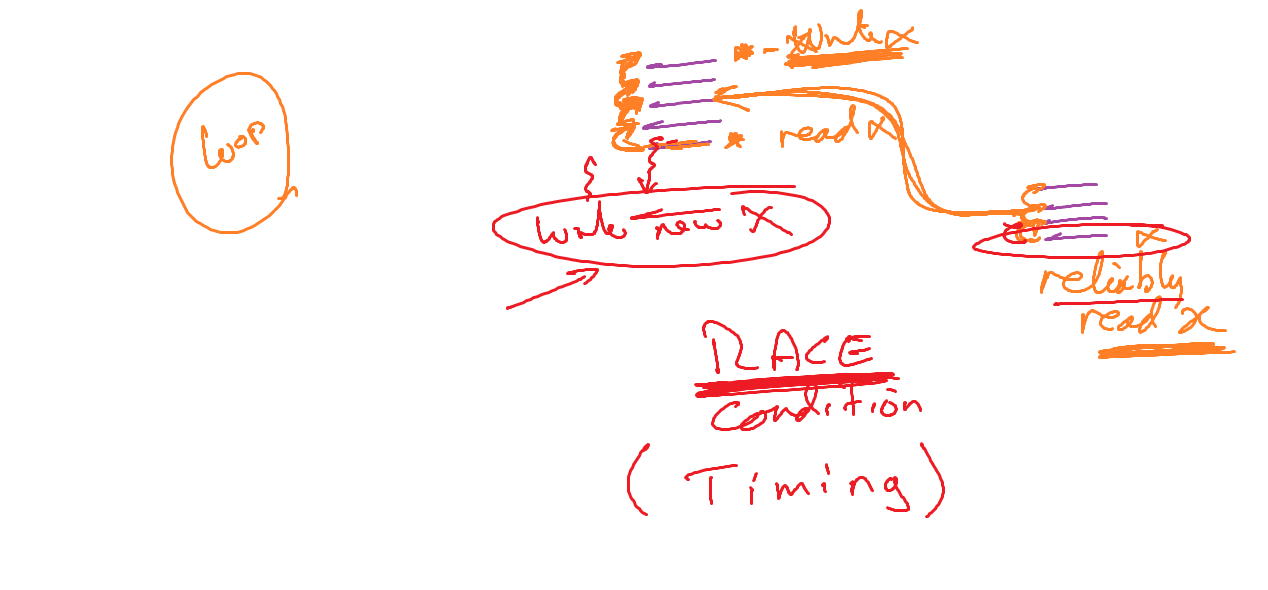 * - Write x
Loop
* read x
write new X
x
reliably
read x
RACE
condition
( Timing )